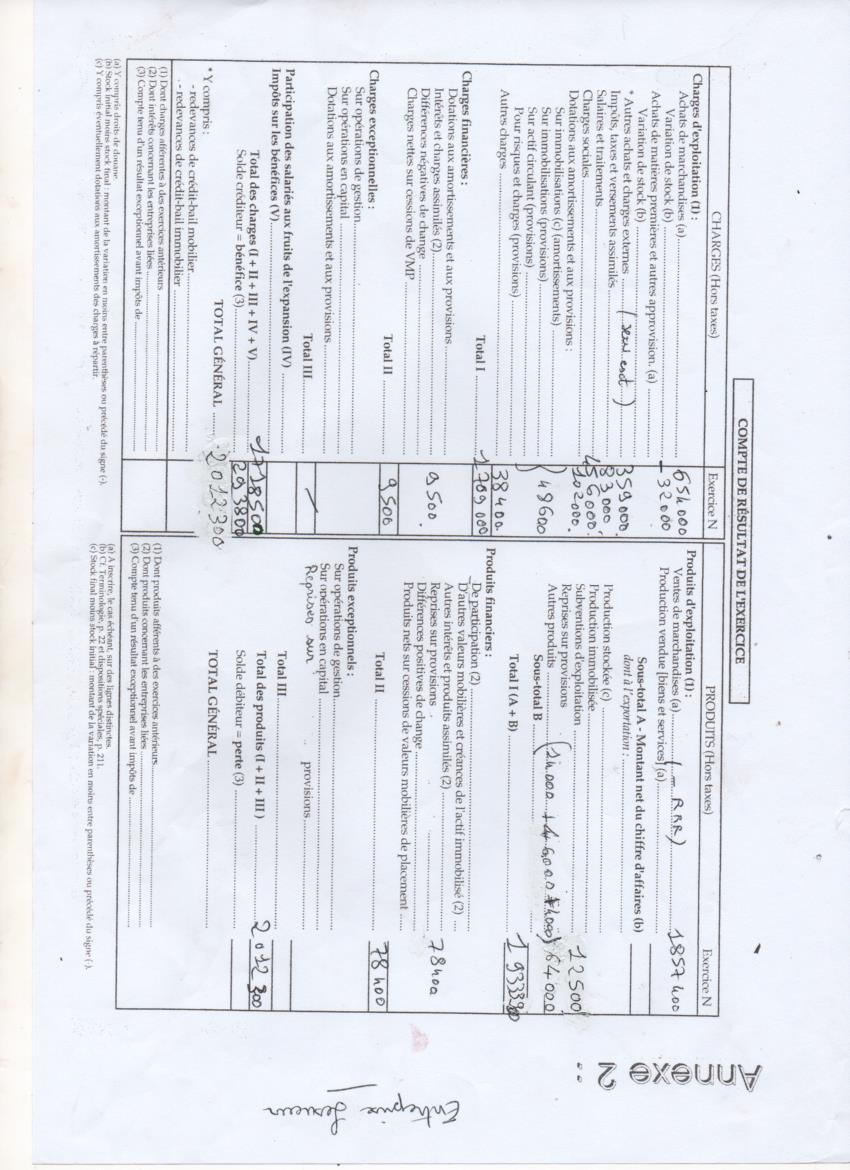 COMPTE DE RÉSULTAT DE L'EXERCICE
CHARGES (Hors taxes) Exercice N
Charges d'exploitation (1) :
Achats de marchandises (a) 654 000
Variation de stock (b) - 32 000
Achats de matières premières et autres approvision. (a)
Variation de stock (b)
* Autres achats et charges externes (serv. ext) 359 000
Impôts, taxes et versements assimilés 83 000
Salaires et traitements 456 000
Charges sociales 102 000
Dotations aux amortissements et aux provisions :
Sur immobilisations (c) (amortissements)
Sur immobilisations (provisions) 48600
Sur actif circulant (provisions)
Pour risques et charges (provisions)
Autres charges 38 400
Total I 1 709 000
Charges financières :
Dotations aux amortissements et aux provisions
Intérêts et charges assimilés (2) 9 500
Différences négatives de change
Charges nettes sur cessions de VMP
Total II 9 500
Charges exceptionnelles :
Sur opérations de gestion
Sur opérations en capital
Dotations aux amortissements et aux provisions
Total III
Participation des salariés aux fruits de l'expansion (IV)
Impôts sur les bénéfices (V)
Total des charges (I + II + III + IV + V) 1718500
Solde créditeur = bénéfice (3) 293800
TOTAL GÉNÉRAL 2012300
* Y compris :
- redevances de crédit-bail mobilier
- redevances de crédit-bail immobilier
(1) Dont charges afférentes à des exercices antérieurs
(2) Dont intérêts concernant les entreprises liées
(3) Compte tenu d'un résultat exceptionnel avant impôts de
(a) Y compris droits de douane.
(b) Stock initial moins stock final : montant de la variation en moins entre parenthèses ou précédé du signe (-).
(c) Y compris éventuellement dotations aux amortissements des charges à répartir.
PRODUITS (Hors taxes) Exercice N
Produits d'exploitation (1) :
Ventes de marchandises (a) (- RRR) 1857 400
Production vendue [biens et services] (a)
Sous-total A - Montant net du chiffre d'affaires (b)
dont à l'exportation :
Production stockée (c)
Production immobilisée
Subventions d'exploitation 12500
Reprises sur provisions
Autres produits (14 000 + 46 000 + 4000) 64 000
Sous-total B
Total I (A + B) 1 933 900
Produits financiers :
De participation (2)
D'autres valeurs mobilières et créances de l'actif immobilisé (2)
Autres intérêts et produits assimilés (2)
Reprises sur provisions 78400
Différences positives de change
Produits nets sur cessions de valeurs mobilières de placement
Total II 78 400
Produits exceptionnels :
Sur opérations de gestion
Sur opérations en capital
Reprises sur provisions
Total III
Total des produits (I + II + III) 2 012 300
Solde débiteur = perte (3)
TOTAL GÉNÉRAL
(1) Dont produits afférents à des exercices antérieurs
(2) Dont produits concernant les entreprises liées
(3) Compte tenu d'un résultat exceptionnel avant impôts de
(a) A inscrire, le cas échéant, sur des lignes distinctes.
(b) Cf. Terminologie, p. 22 et dispositions spéciales, p. 211.
(c) Stock final moins stock initial : montant de la variation en moins entre parenthèses ou précédé du signe (-).
Annexe 2 :
Entreprise Lesueur